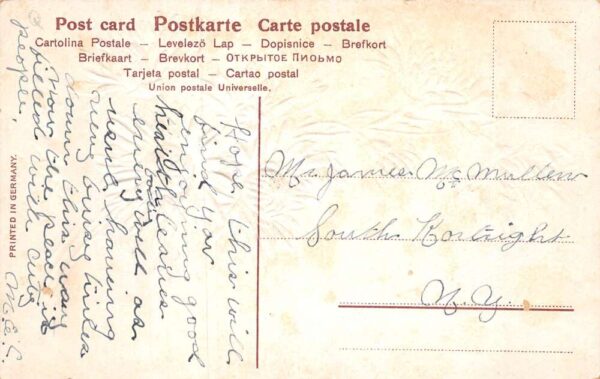 Post card Postkarte Carte postale
Cartolina Postale – Levelező Lap – Dopisnice – Brefkort
Briefkaart – Brevkort – ОТКРЫТОЕ ПИСЬМО
Tarjeta postal – Cartao postal
Union postale Universelle.
Hope this will
find you
enjoying good
health leaves
well as
usual having
very busy times
down this way
now the place is
filled with city
people.
M.E.C.
Mr. James Mc Mullen
South Kortright
N.Y.
PRINTED IN GERMANY.